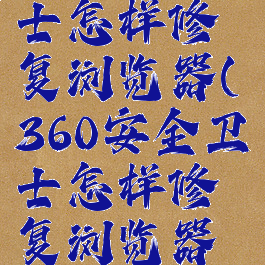 士怎样修
复浏览器(
360安全卫
士怎样修
复浏览器